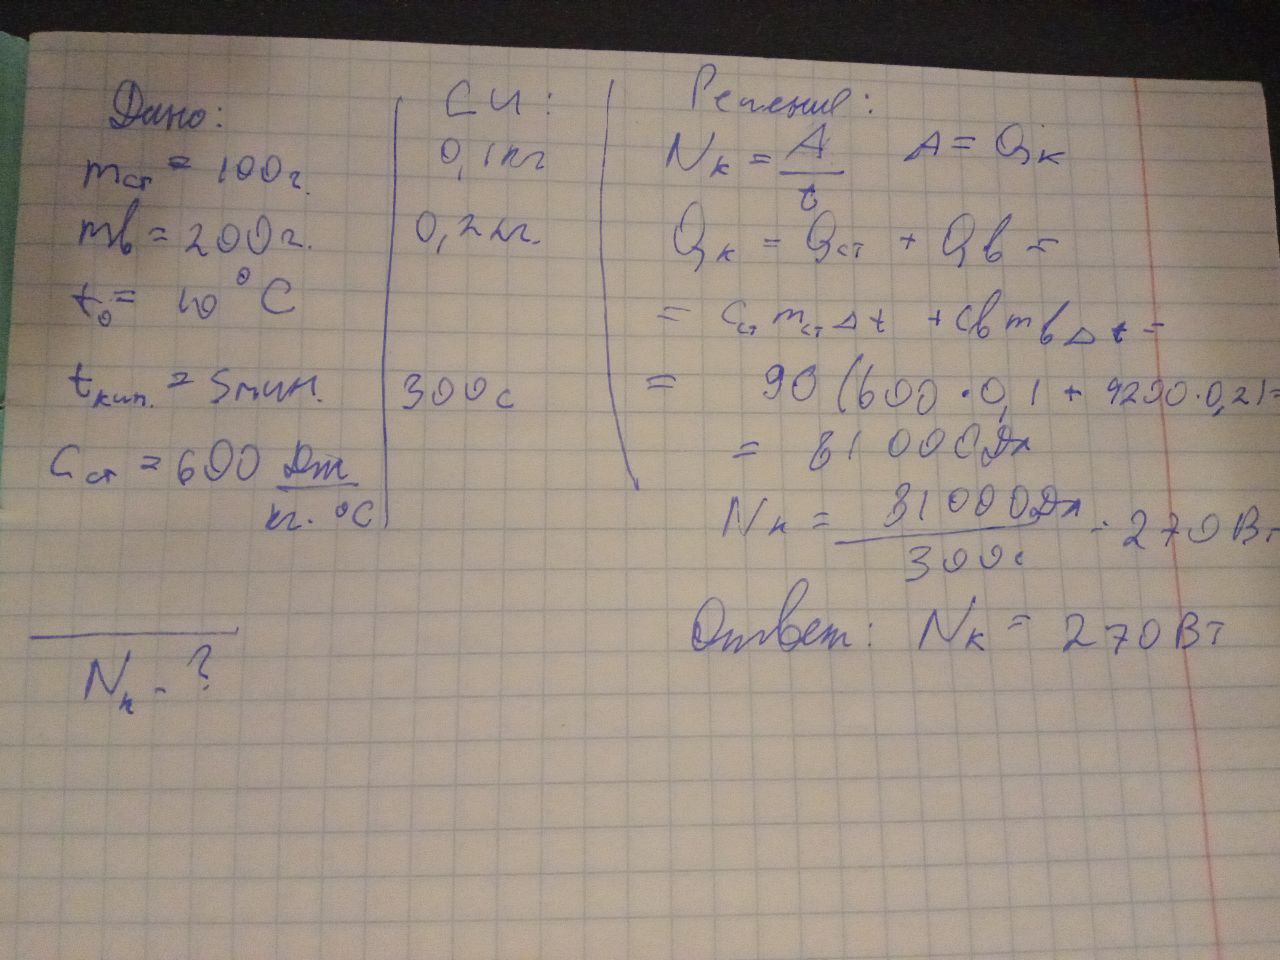 Дано:
mст = 100г.
mв = 200г.
t₀ = 10°C
tкип. = 5мин.
Cст = 600 Дж
кг. °C
Nк - ?
СИ:
0,1кг
0,2кг.
300с
Решение:
Nк = A/t A = Qк
Qк = Qст + Qв =
= Cст mст Δt + Cв mв Δt =
= 90(600·0,1 + 4200·0,2)=
= 81000Дж
Nк = 81000Дж/300с = 270Вт
Ответ: Nк = 270Вт